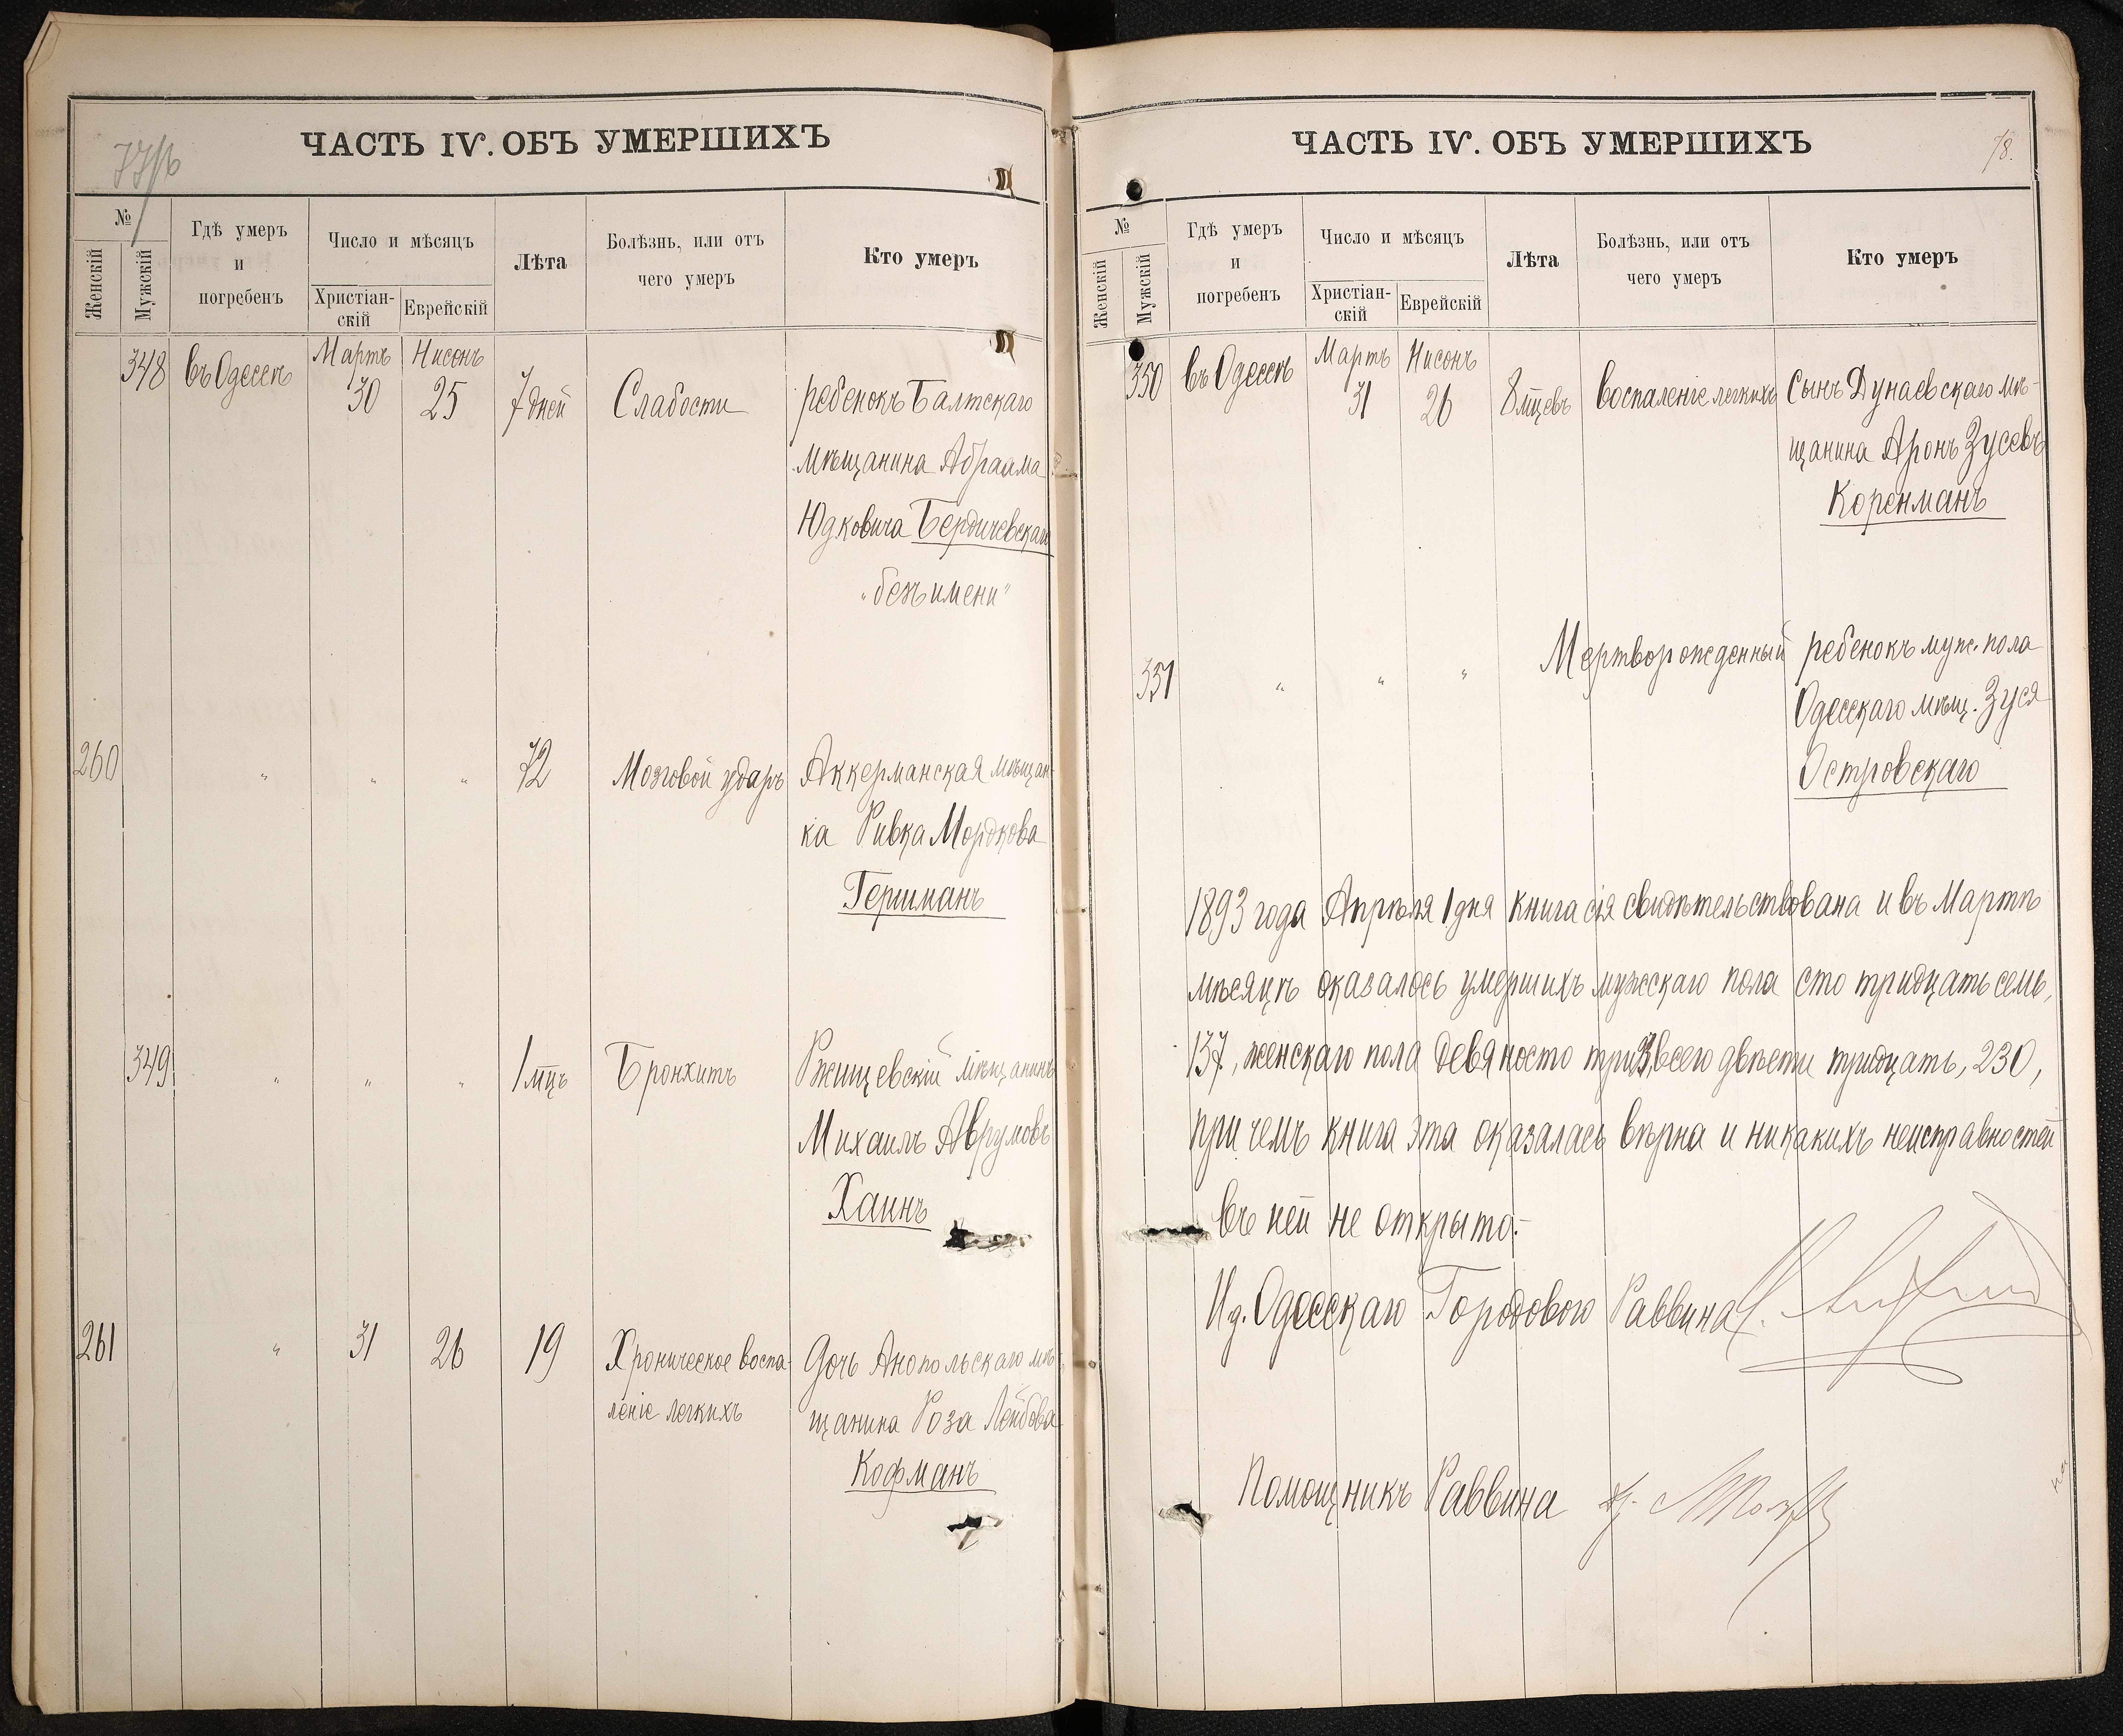 ЧАСТЬ IV. ОБЪ УМЕРШИХЪ
№
Женскій
Мужскій
Гдѣ умеръ
и
погребенъ
Число и мѣсяцъ
Христіан-
скій
Еврейскій
Лѣта
Болѣзнь, или отъ
чего умеръ
Кто умеръ
348 въ Одессѣ Мартъ 30 Нисонъ 25 7 дней Слабости ребенокъ Балтскаго
мѣщанина Абраама
Юдковича Бердичевскаго
"безъ имени"
260 " " " 72 Мозговой ударъ Аккерманская мѣщан-
ка Ривка Мордкова
Гершманъ
349 " " " 1 мцъ Бронхитъ Ржищевскій мѣщанинъ
Михаилъ Аврумовъ
Хаинъ
261 " 31 26 19 Хроническое воспа- Дочь Анопольскаго мѣ-
леніе легкихъ щанина Роза Лейбова
Кофманъ
ЧАСТЬ IV. ОБЪ УМЕРШИХЪ
78.
№
Женскій
Мужскій
Гдѣ умеръ
и
погребенъ
Число и мѣсяцъ
Христіан-
скій
Еврейскій
Лѣта
Болѣзнь, или отъ
чего умеръ
Кто умеръ
350 въ Одессѣ Мартъ 31 Нисонъ 26 8 мцевъ воспаленіе легкихъ Сынъ Дунаевскаго мѣ-
щанина Аронъ Зусевъ
Коренманъ
351 " " " Мертворожденный ребенокъ муж. пола
Одесскаго мѣщ. Зуся
Островскаго
1893 года Апрѣля 1 дня книга сія свидѣтельствована и въ Мартѣ
мѣсяцѣ оказалось умершихъ мужскаго пола сто тридцать семь,
137, женскаго пола девяносто три, всего двѣсти тридцать, 230,
при чемъ книга эта оказалась вѣрна и никакихъ неисправностей
въ ней не открыто.-
Ид. Одесскаго Городового Раввина
Помощникъ Раввина